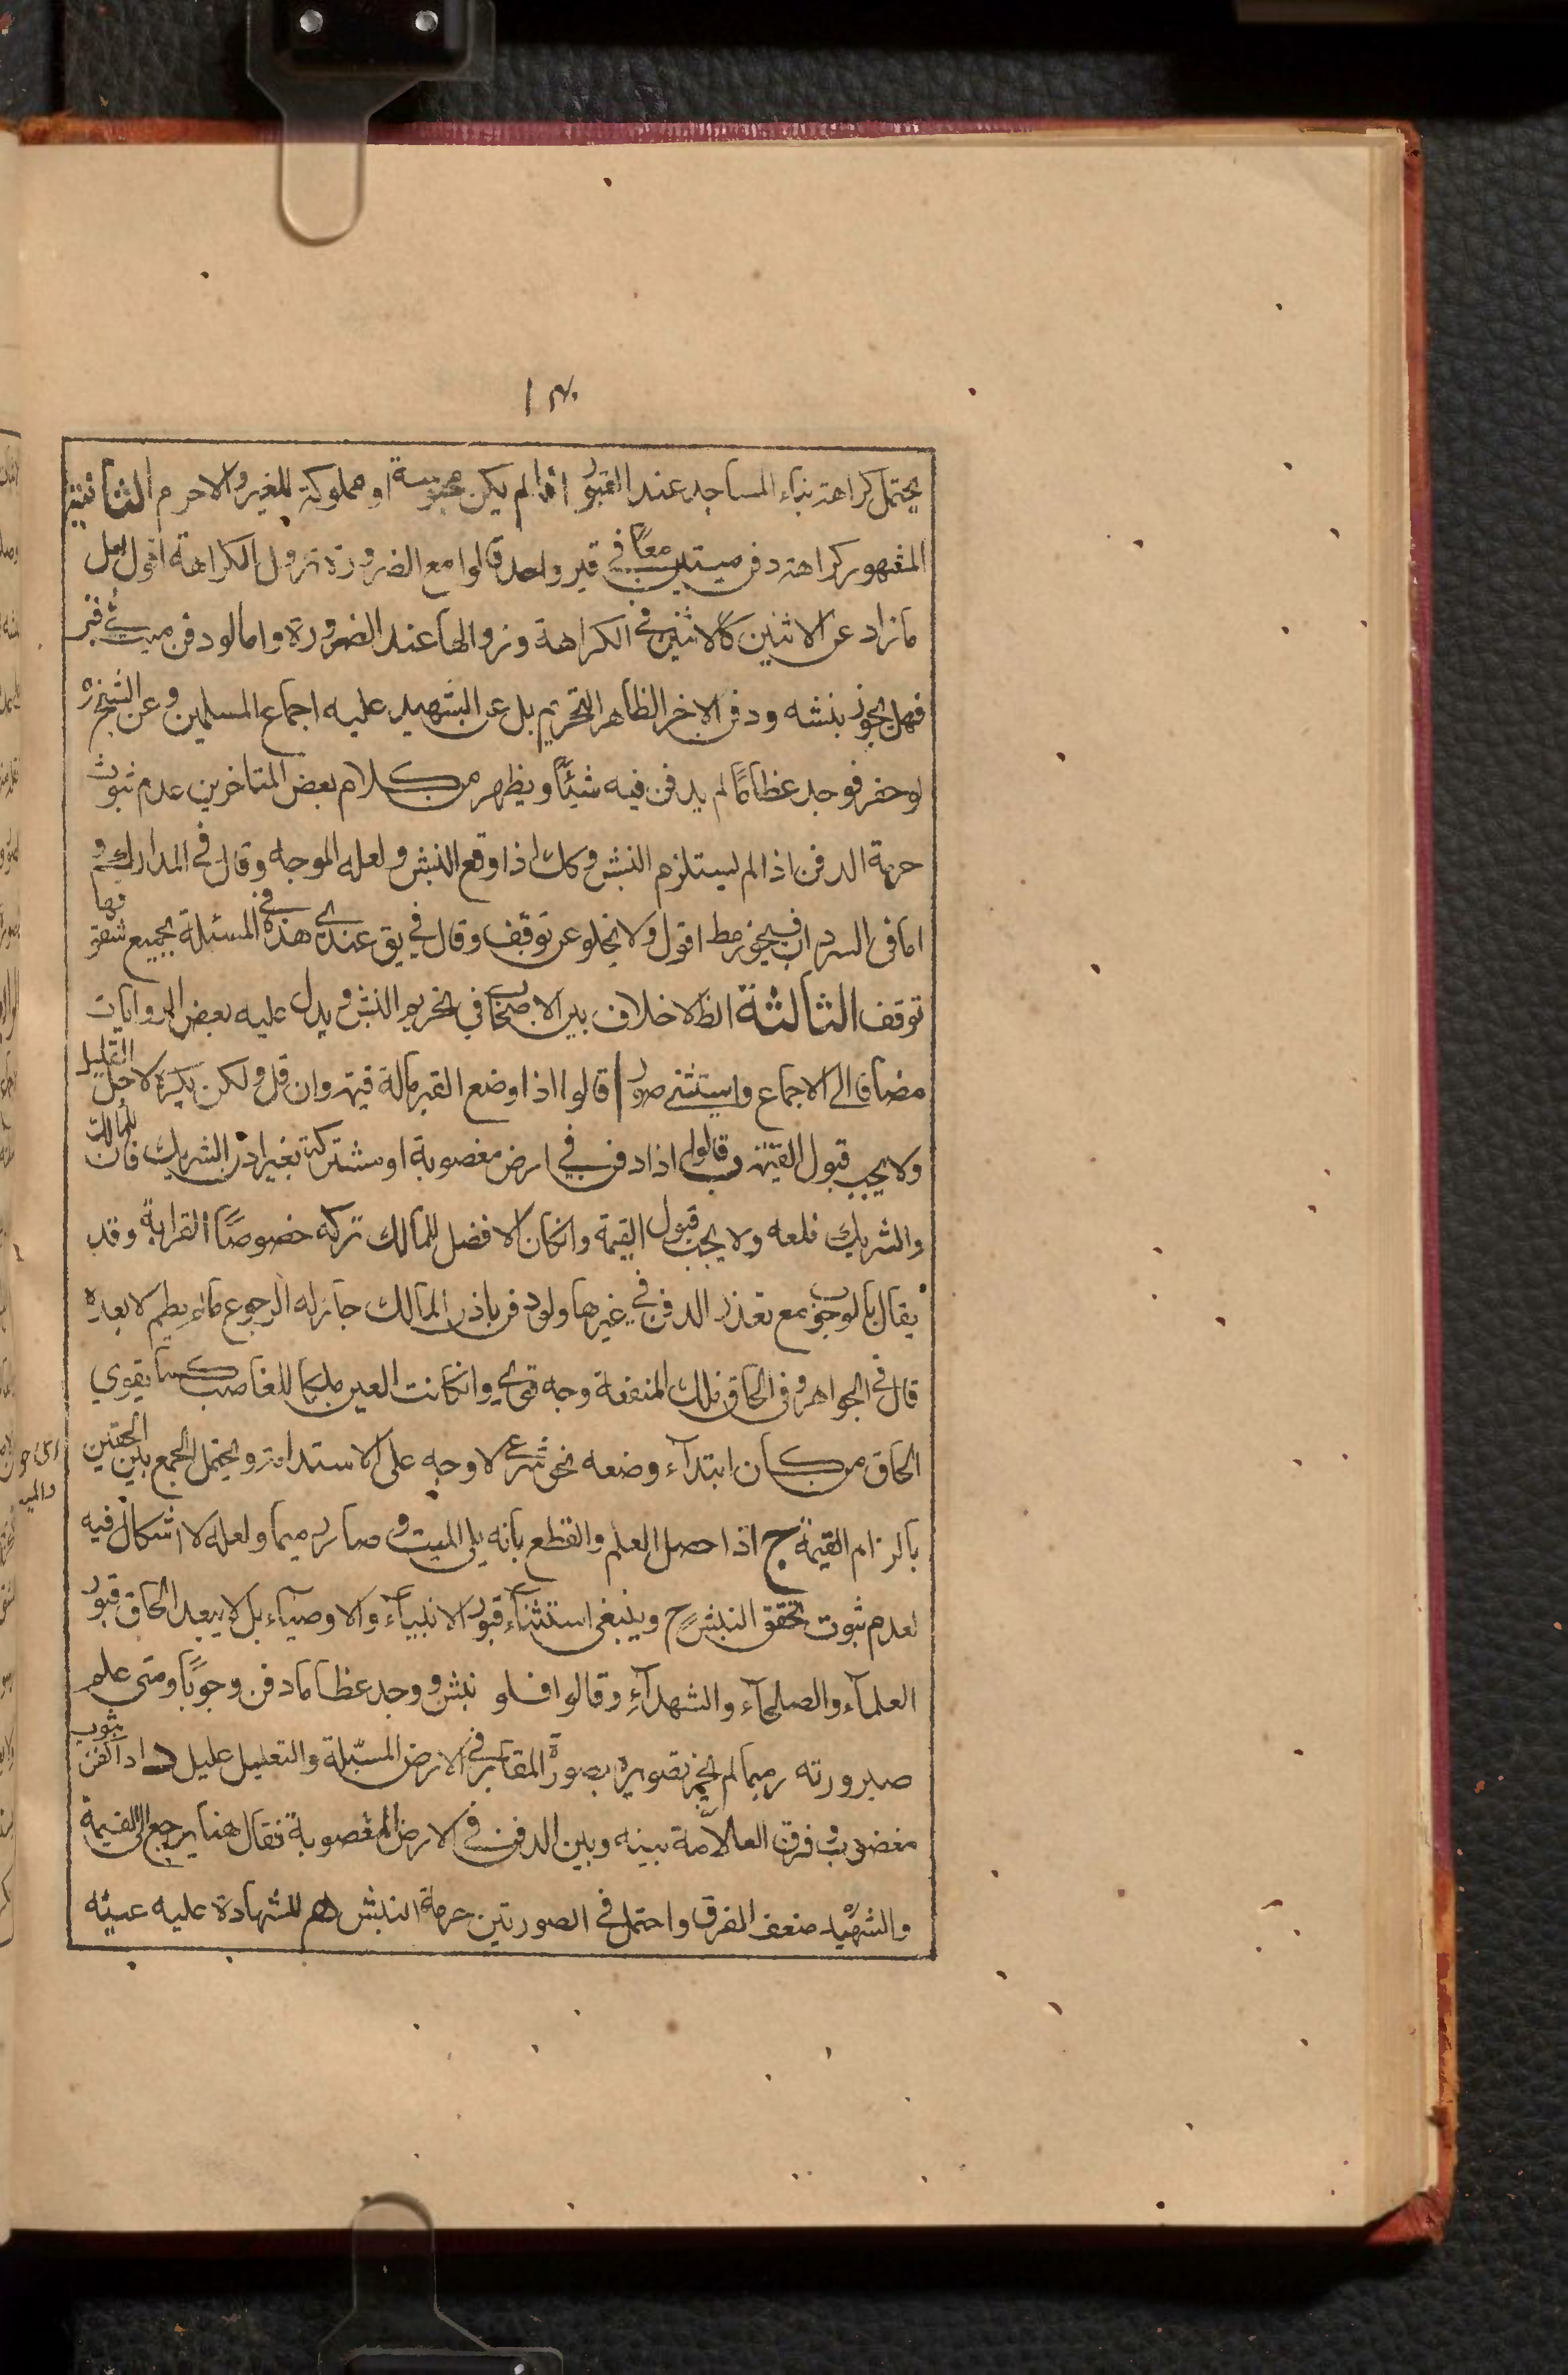 يحتمل كراهة بناء المساجد عند القبور اذا لم يكن محبوسة او مملوكة للغير والا حرم الثانية
المشهور كراهة دفن ميتين معًا في قبر واحد قالوا مع الضرورة تزول الكراهة اقول لعل
ما زاد عن الاثنين كالاثنين في الكراهة وزوالها عند الضرورة واما لو دفن ميت في قبر
فهل يجوز بنشه ودفن الاخر الظاهر التحريم بل عن الشهيد عليه اجماع المسلمين وعن الشيخ ره
لو حفر فوجد عظامًا لم يدفن فيه شيئًا ويظهر من كلام بعض المتاخرين عدم ثبوت
حرمة الدفن اذا لم يستلزم النبش وكك اذا وقع النبش ولعله الموجه وقال في المدارك و
اما فى السرداب فيجوز مط اقول ولا يخلو عن توقف وقال في يق عندى في هذه المسئلة بجميع شقوقها
توقف الثالثة الظ لا خلاف بين الاصحاب في تحريم النبش ويدل عليه بعض الروايات
مضافا الى الاجماع واستثنى صور ا قالوا اذا وضع القبر ماله قيمة وان قل ولكن يكره لاجل القليل
ولا يجب قبول القيمة ب قالوا اذا دفن في ارض مغصوبة او مشتركة بغير اذن الشريك فان للمالك
والشريك قلعه ولا يجب قبول القيمة وانكان الافضل للمالك تركه خصوصًا القرابة وقد
يقال بالوجوب مع تعذر الدفن في غيرها ولو دفن باذن المالك جاز له الرجوع ما لم يطم لا بعده
قال في الجواهر وفى الحاق تلك المنفعة وجه قوى وانكانت العين ملكا للغاصب كما يقوي
الحاق من كان ابتداء وضعه بنحو شرعى لا وجه على الاستدامة ويحتمل الجمع بين الحقين
بالزام القيمة ج اذا حصل العلم والقطع بانه بلى الميت وصار رميما ولعله لا اشكال فيه
لعدم ثبوت تحقق النبش ح وينبغى استثناء قبور الانبياء والاوصياء بل لا يبعد الحاق قبور
العلماء والصلحاء والشهداء وقالوا فلو نبش ووجد عظاما دفن وجوبًا ومتى علم
صيرورته رميما لم يجز تصويره بصورة المقابر في الارض المسبّلة والتعليل عليل د اذا كفن بثوب
مغصوب وفرق العلامّة بينه وبين الدفن في الارض المغصوبة فقال هنا يرجع الى القيمة
والشهيد ضعف الفرق واحتمل في الصورتين حرمة النبش هـ للشهادة عليه عينه